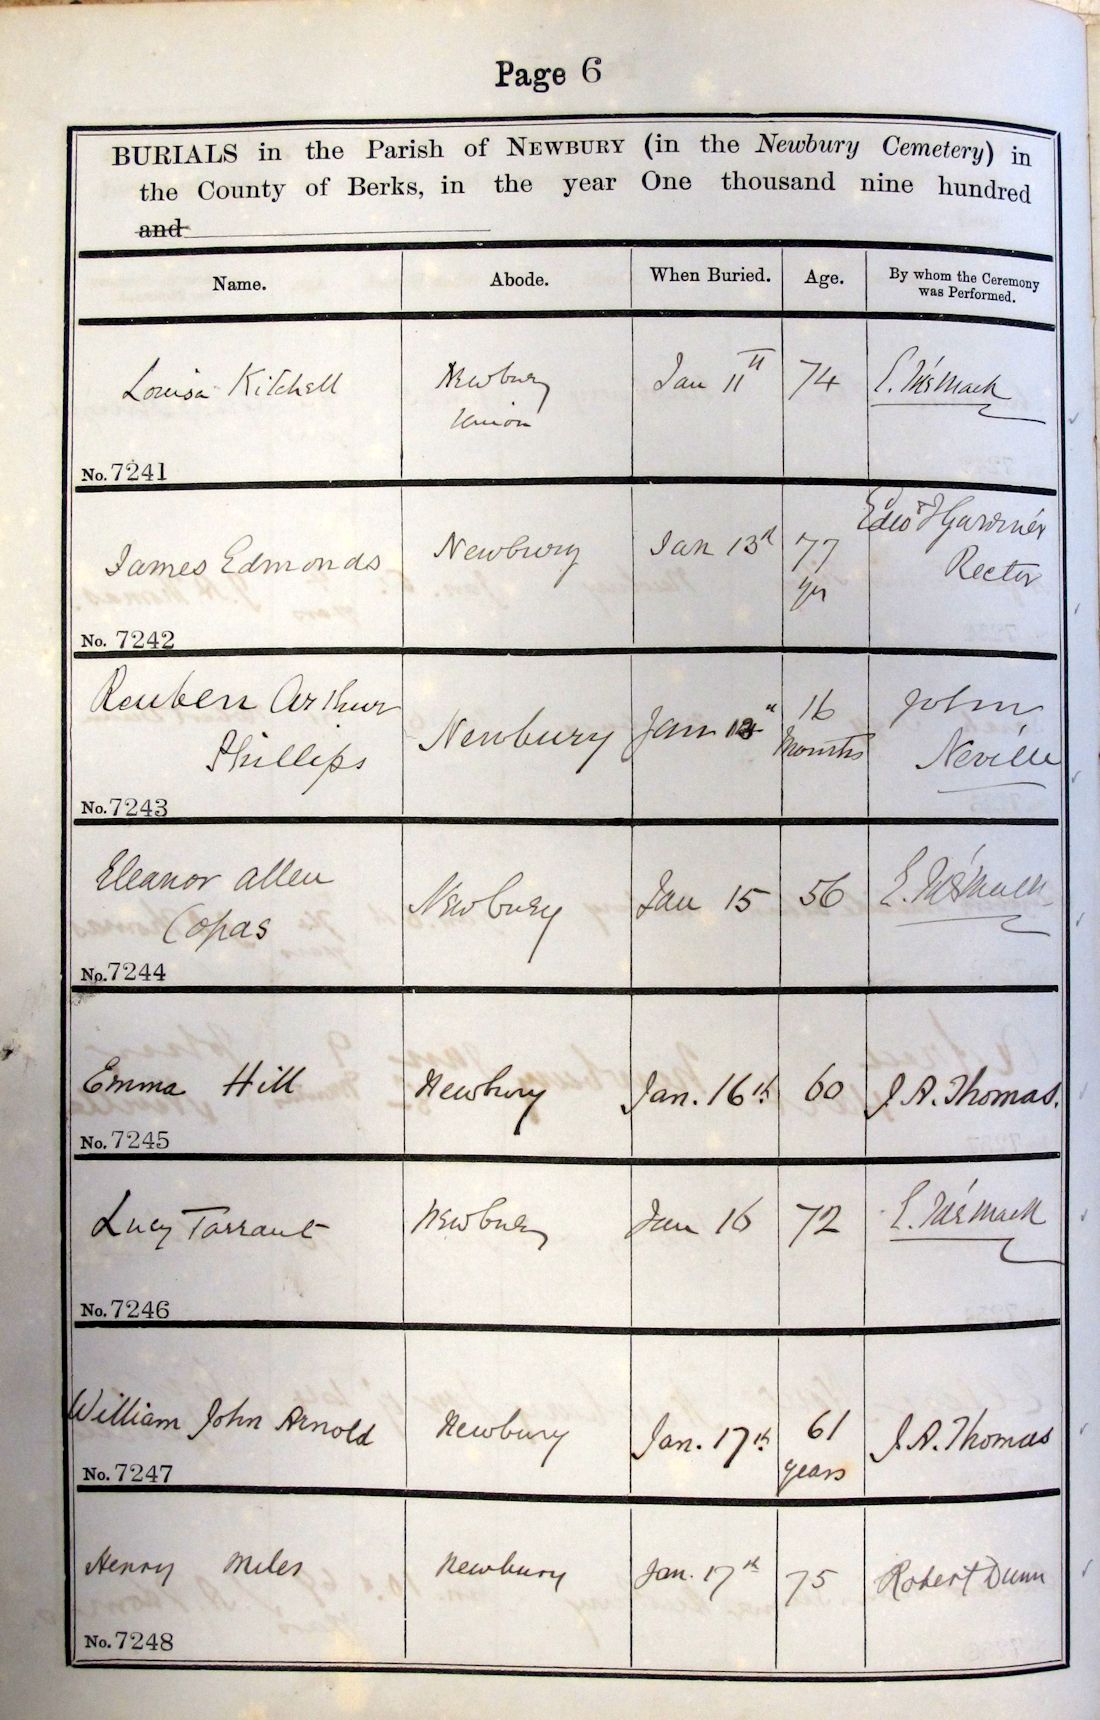 Page 6
BURIALS in the Parish of NEWBURY (in the Newbury Cemetery) in
the County of Berks, in the year One thousand nine hundred
and
Name. Abode. When Buried. Age. By whom the Ceremony
was Performed.
Louisa Kitchell Newbury Jan 11th 74
Union
No. 7241
James Edmonds Newbury Jan 13th 77 Edwd J Gardiner
yrs Rector
No. 7242
Reuben Arthur 16 John
Phillips Newbury Jan Months Neville
No. 7243
Eleanor Allen Newbury Jan 15 56
Copas
No. 7244
Emma Hill Newbury Jan. 16th 60 J. A. Thomas.
No. 7245
Lucy Tarrant Newbury Jan 16 72
No. 7246
William John Arnold Newbury Jan. 17th 61 J. A. Thomas
years
No. 7247
Henry Miles Newbury Jan. 17th 75 Robert Dunn
No. 7248